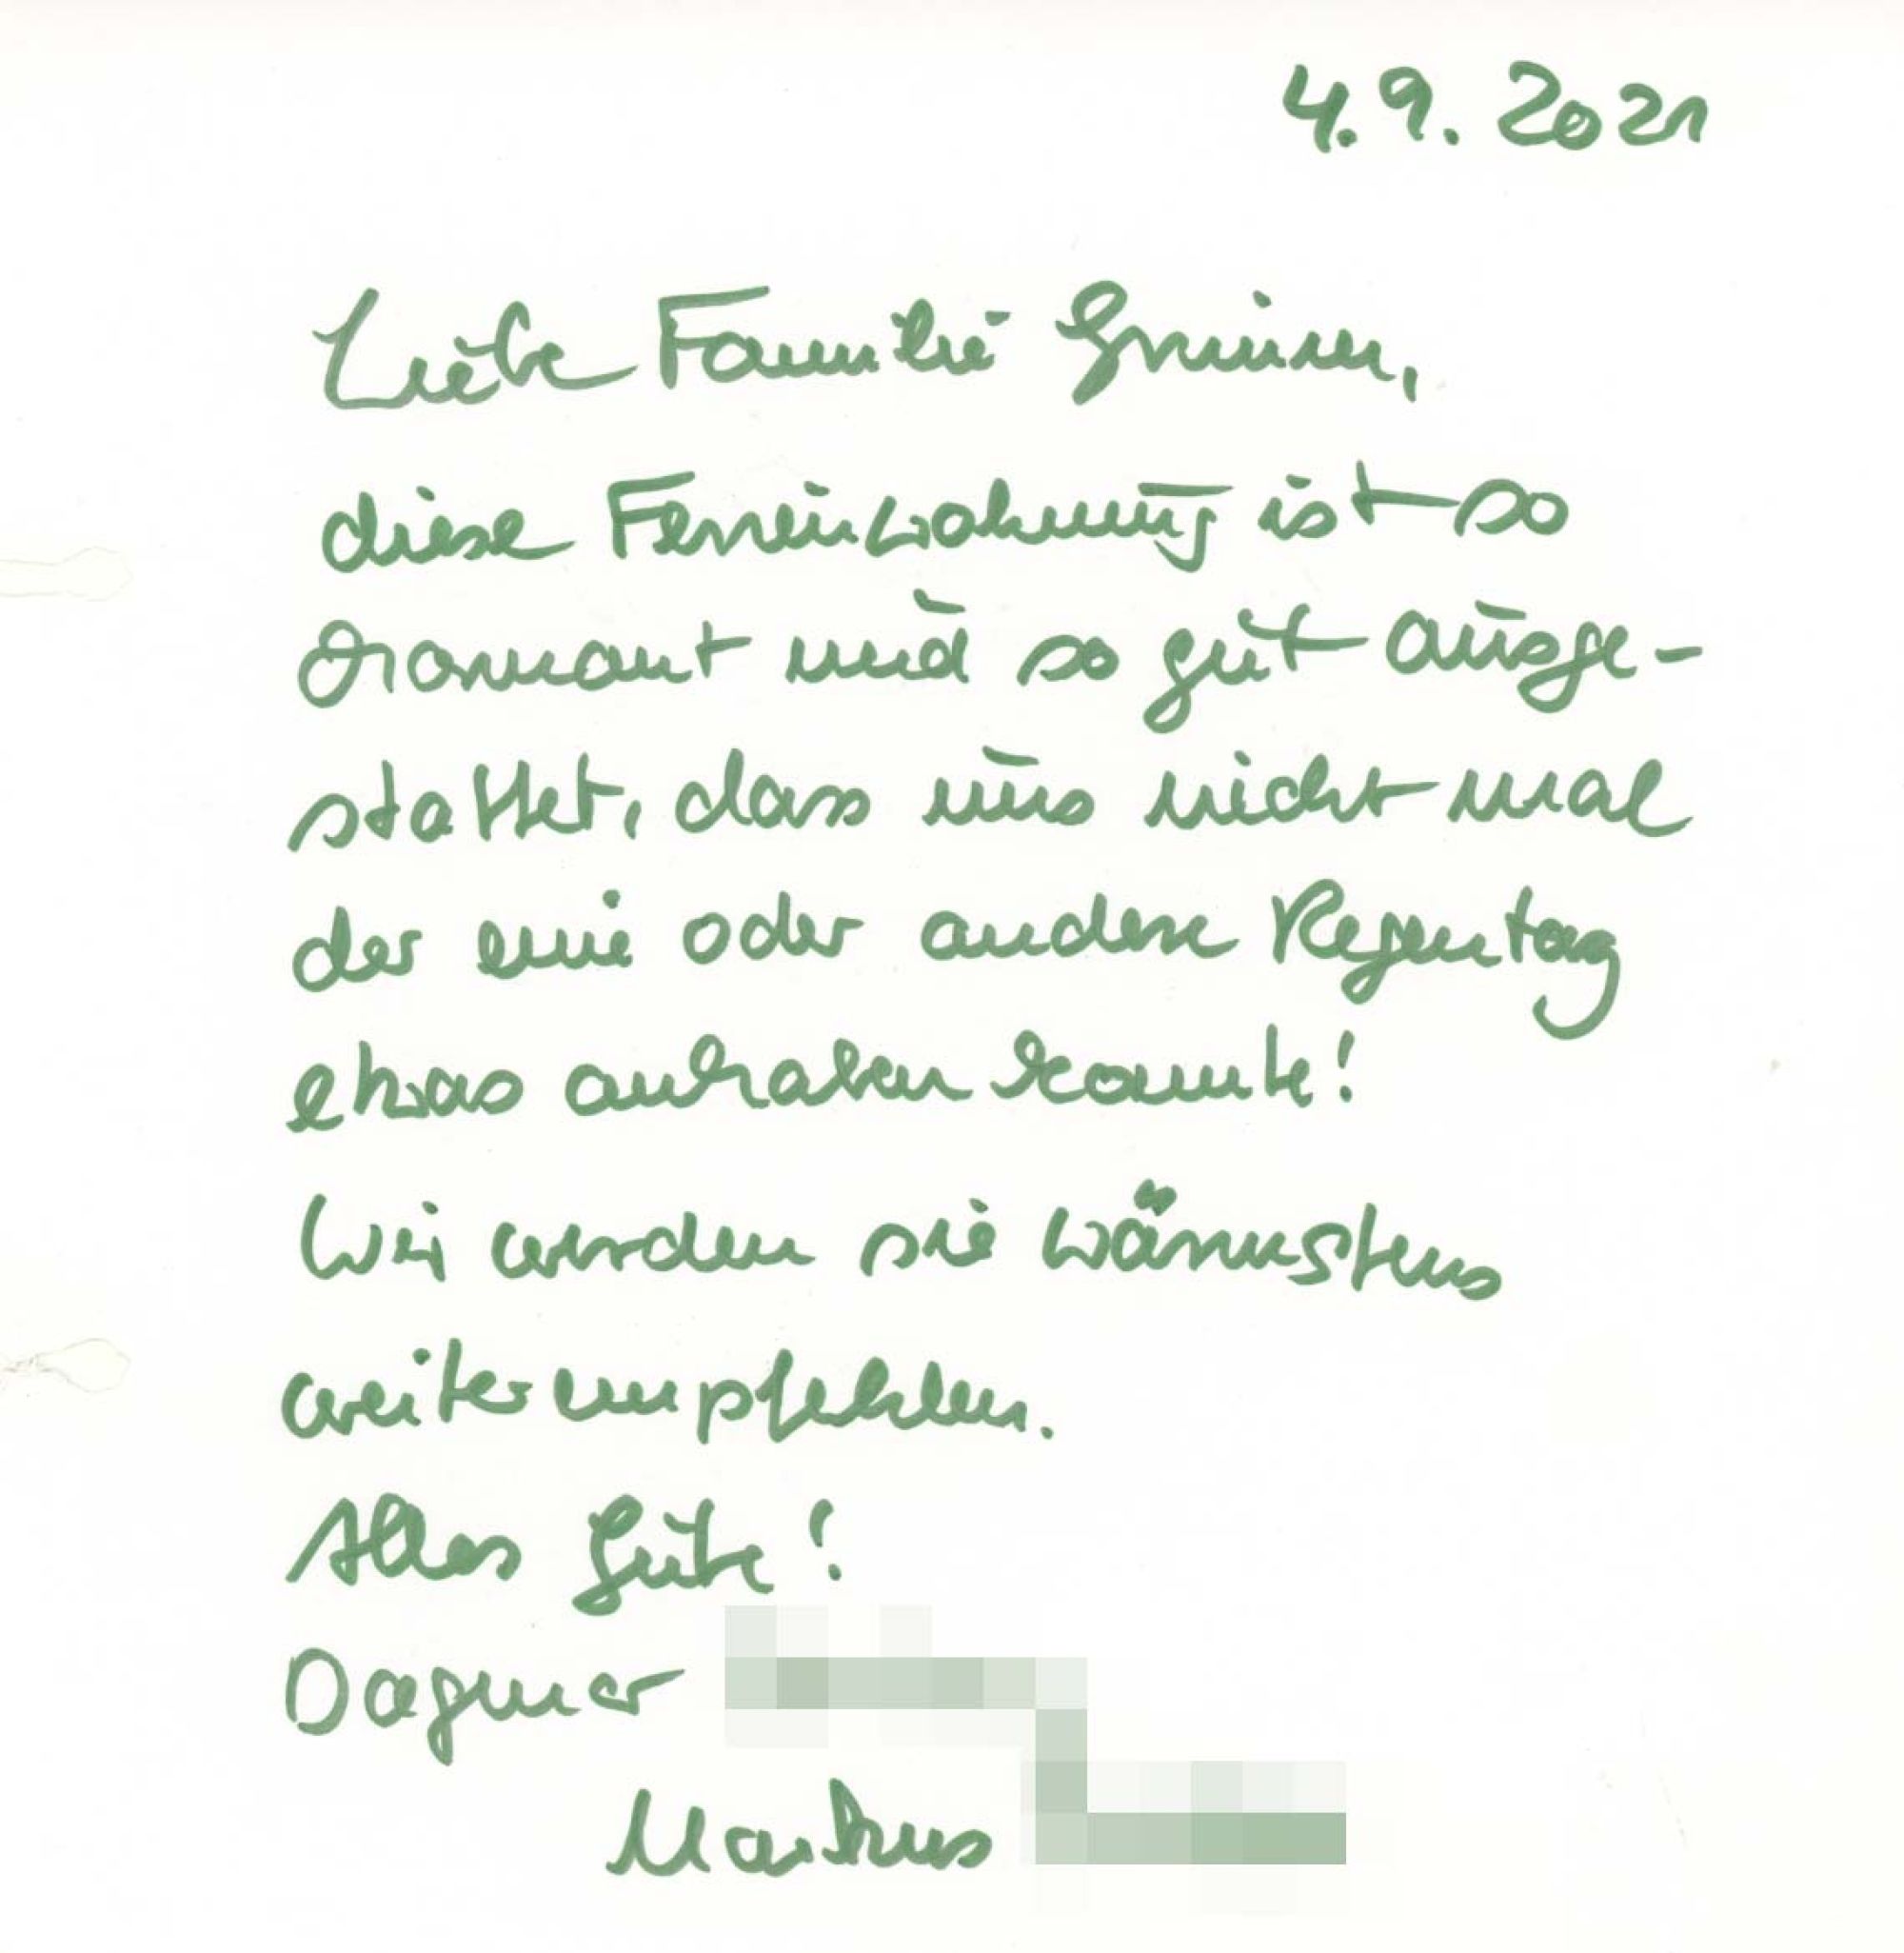 4.9.2021
Liebe Familie Grimm,
diese Ferienwohnung ist so
charmant und so gut ausge-
stattet, dass uns nicht mal
der eine oder andere Regentag
etwas anhaben konnte!
Wir werden sie wärmstens
weiterempfehlen.
Alles Gute!
Dagmar
Markus